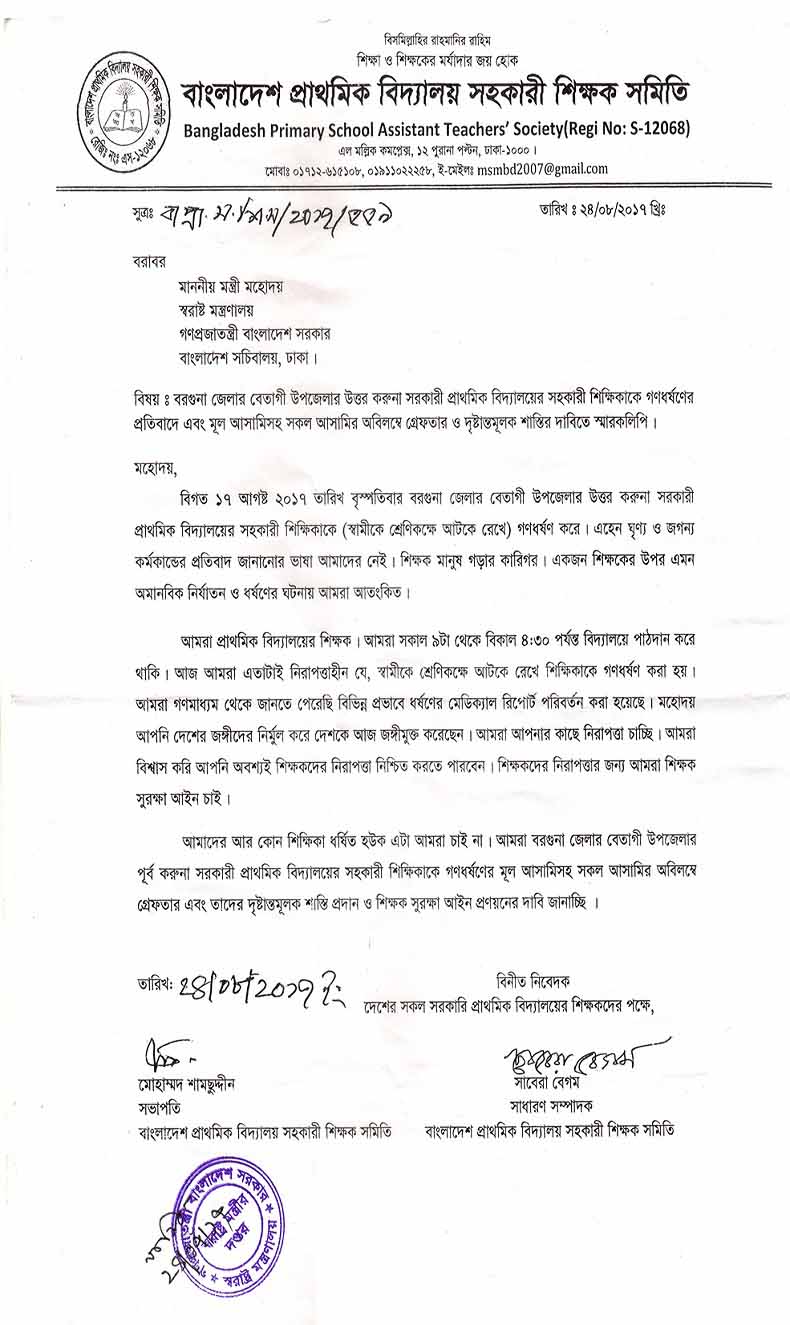 বিসমিল্লাহির রাহমানির রাহিম
শিক্ষা ও শিক্ষকের মর্যাদার জয় হোক
বাংলাদেশ প্রাথমিক বিদ্যালয় সহকারী শিক্ষক সমিতি
Bangladesh Primary School Assistant Teachers' Society(Regi No: S-12068)
এল মল্লিক কমপ্লেক্স, ১২ পুরানা পল্টন, ঢাকা-১০০০।
মোবাঃ ০১৭১২-৬১৫১০৮, ০১৯১১০২২২৫৮, ই-মেইলঃ msmbd2007@gmail.com
বাংলাদেশ প্রাথমিক বিদ্যালয় সহকারী শিক্ষক সমিতি
রেজিঃ নংঃ এস-১২০৬৮
সূত্রঃ
তারিখ ঃ ২৪/০৮/২০১৭ খ্রিঃ
বরাবর
মাননীয় মন্ত্রী মহোদয়
স্বরাষ্ট মন্ত্রণালয়
গণপ্রজাতন্ত্রী বাংলাদেশ সরকার
বাংলাদেশ সচিবালয়, ঢাকা।
বিষয় ঃ বরগুনা জেলার বেতাগী উপজেলার উত্তর করুনা সরকারী প্রাথমিক বিদ্যালয়ের সহকারী শিক্ষিকাকে গণধর্ষণের
প্রতিবাদে এবং মূল আসামিসহ সকল আসামির অবিলম্বে গ্রেফতার ও দৃষ্টান্তমূলক শাস্তির দাবিতে স্মারকলিপি।
মহোদয়,
বিগত ১৭ আগষ্ট ২০১৭ তারিখ বৃস্পতিবার বরগুনা জেলার বেতাগী উপজেলার উত্তর করুনা সরকারী
প্রাথমিক বিদ্যালয়ের সহকারী শিক্ষিকাকে (স্বামীকে শ্রেণিকক্ষে আটকে রেখে) গণধর্ষণ করে। এহেন ঘৃণ্য ও জগন্য
কর্মকান্ডের প্রতিবাদ জানানোর ভাষা আমাদের নেই। শিক্ষক মানুষ গড়ার কারিগর। একজন শিক্ষকের উপর এমন
অমানবিক নির্যাতন ও ধর্ষণের ঘটনায় আমরা আতংকিত।
আমরা প্রাথমিক বিদ্যালয়ের শিক্ষক। আমরা সকাল ৯টা থেকে বিকাল ৪:৩০ পর্যন্ত বিদ্যালয়ে পাঠদান করে
থাকি। আজ আমরা এতাটাই নিরাপত্তাহীন যে, স্বামীকে শ্রেণিকক্ষে আটকে রেখে শিক্ষিকাকে গণধর্ষণ করা হয়।
আমরা গণমাধ্যম থেকে জানতে পেরেছি বিভিন্ন প্রভাবে ধর্ষণের মেডিক্যাল রিপোর্ট পরিবর্তন করা হয়েছে। মহোদয়
আপনি দেশের জঙ্গীদের নির্মুল করে দেশকে আজ জঙ্গীমুক্ত করেছেন। আমরা আপনার কাছে নিরাপত্তা চাচ্ছি। আমরা
বিশ্বাস করি আপনি অবশ্যই শিক্ষকদের নিরাপত্তা নিশ্চিত করতে পারবেন। শিক্ষকদের নিরাপত্তার জন্য আমরা শিক্ষক
সুরক্ষা আইন চাই।
আমাদের আর কোন শিক্ষিকা ধর্ষিত হউক এটা আমরা চাই না। আমরা বরগুনা জেলার বেতাগী উপজেলার
পূর্ব করুনা সরকারী প্রাথমিক বিদ্যালয়ের সহকারী শিক্ষিকাকে গণধর্ষণের মূল আসামিসহ সকল আসামির অবিলম্বে
গ্রেফতার এবং তাদের দৃষ্টান্তমূলক শাস্তি প্রদান ও শিক্ষক সুরক্ষা আইন প্রণয়নের দাবি জানাচ্ছি ।
তারিখ: ২৪/০৮/২০১৭ খ্রিঃ
বিনীত নিবেদক
দেশের সকল সরকারি প্রাথমিক বিদ্যালয়ের শিক্ষকদের পক্ষে,
মোহাম্মদ শামছুদ্দীন
সভাপতি
বাংলাদেশ প্রাথমিক বিদ্যালয় সহকারী শিক্ষক সমিতি
সাবেরা বেগম
সাবেরা বেগম
সাধারণ সম্পাদক
বাংলাদেশ প্রাথমিক বিদ্যালয় সহকারী শিক্ষক সমিতি
গণপ্রজাতন্ত্রী বাংলাদেশ সরকার
স্বরাষ্ট্র মন্ত্রীর
দপ্তর
স্বরাষ্ট্র মন্ত্রণালয়